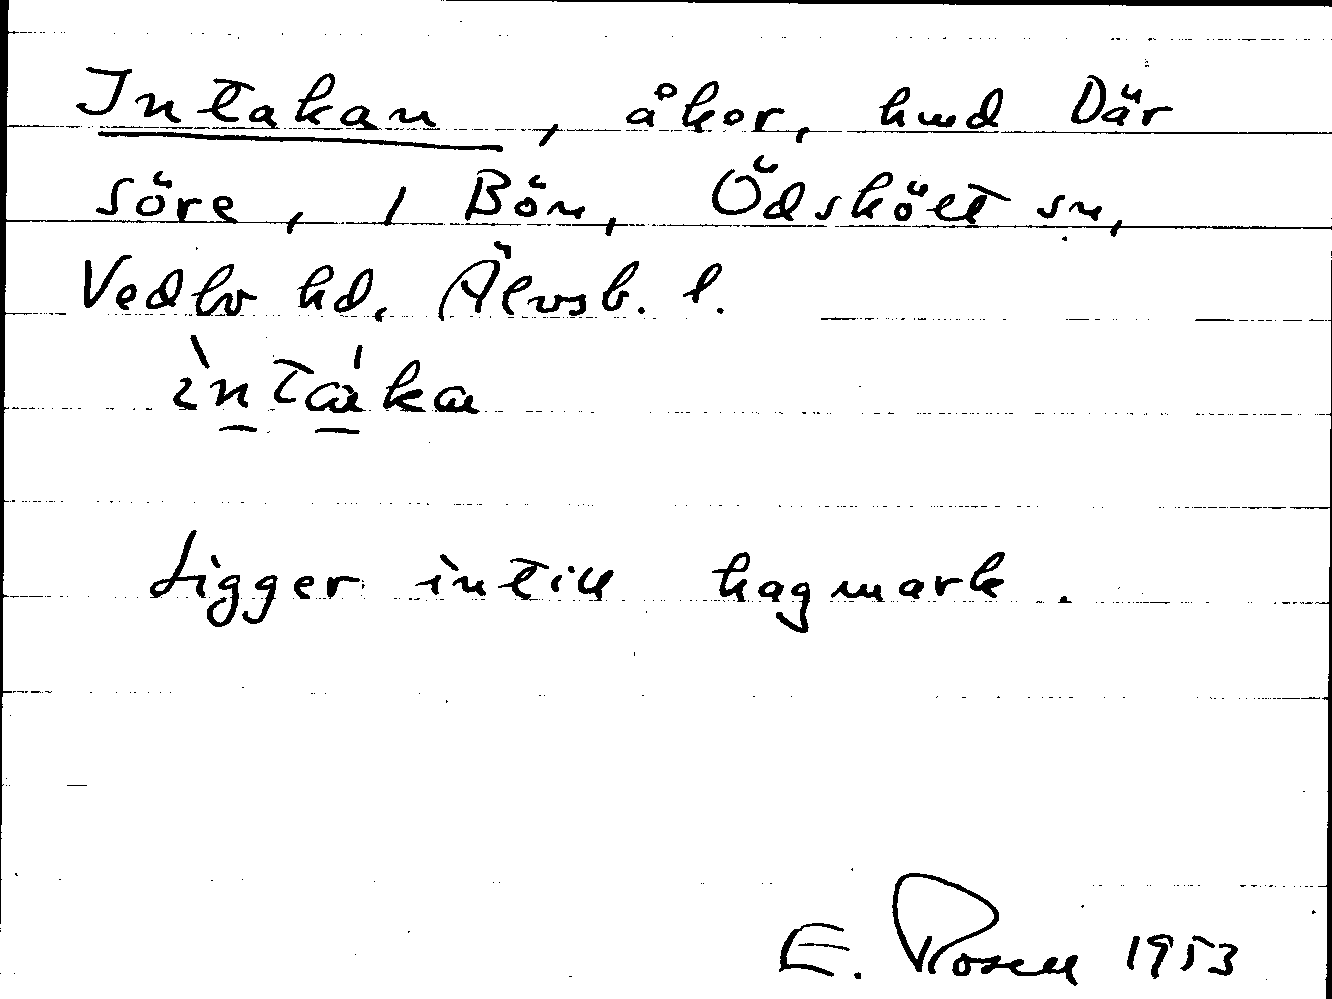 Intakan, åker, hmd Där
söre, 1 Bön, Ödskölt sn,
Vedbo hd. Älvsb. l.
ìntáka
Ligger intill hagmark.
E. Rosell 1953